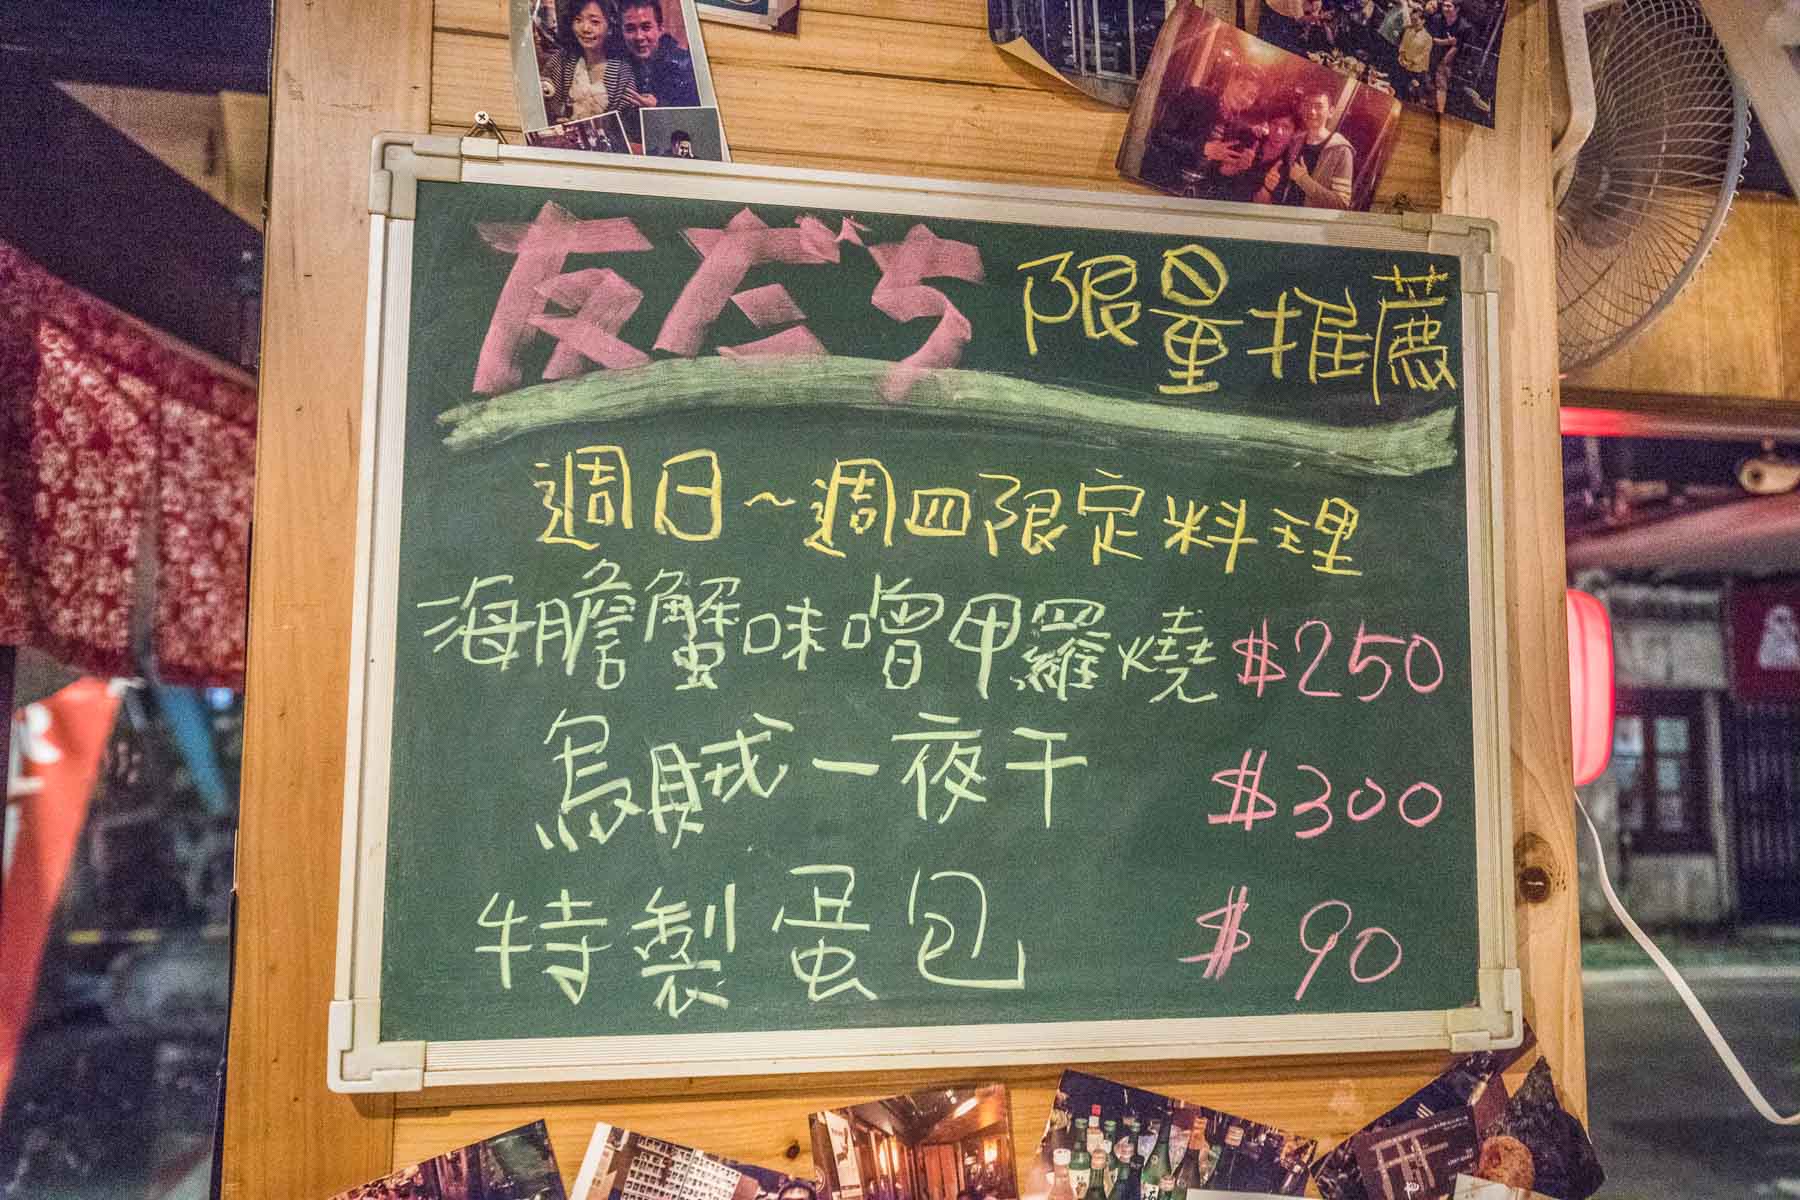 友だち 限量推薦
週日~週四限定料理
海膽蟹味噌甲羅燒 $250
烏賊一夜干 $300
特製蛋包 $90